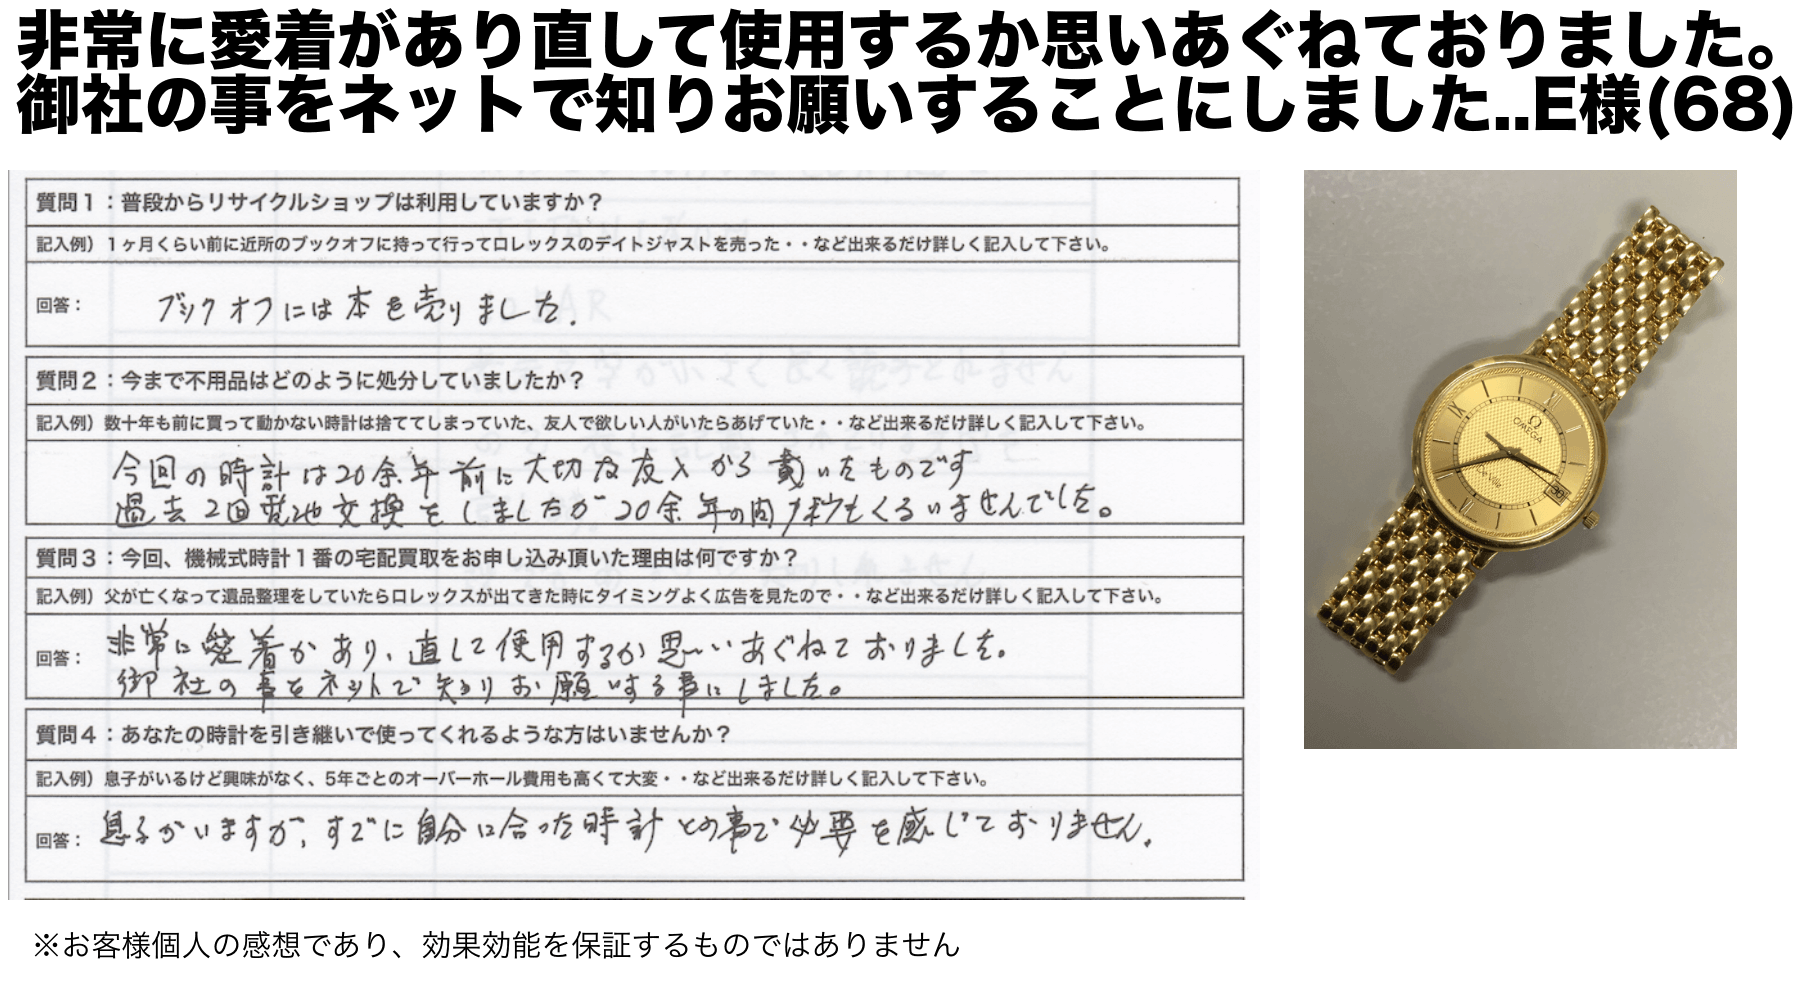 非常に愛着があり直して使用するか思いあぐねておりました。
御社の事をネットで知りお願いすることにしました..E様(68)
質問1：普段からリサイクルショップは利用していますか？
記入例）1ヶ月くらい前に近所のブックオフに持って行ってロレックスのデイトジャストを売った・・など出来るだけ詳しく記入して下さい。
回答： ブックオフには本を売りました.
質問2：今まで不用品はどのように処分していましたか？
記入例）数十年も前に買って動かない時計は捨ててしまっていた、友人で欲しい人がいたらあげていた・・など出来るだけ詳しく記入して下さい。
今回の時計は20余年前に大切な友人から戴いたものです
過去2回電池交換をしましたが20余年の間1秒もくるいませんでした。
質問3：今回、機械式時計1番の宅配買取をお申し込み頂いた理由は何ですか？
記入例）父が亡くなって遺品整理をしていたらロレックスが出てきた時にタイミングよく広告を見たので・・など出来るだけ詳しく記入して下さい。
非常に愛着があり、直して使用するか思いあぐねておりました。
回答：
御社の事をネットで知りお願いする事にしました。
質問4：あなたの時計を引き継いで使ってくれるような方はいませんか？
記入例）息子がいるけど興味がなく、5年ごとのオーバーホール費用も高くて大変・・など出来るだけ詳しく記入して下さい。
回答： 息子がいますが、すでに自分に合った時計との事で必要を感じておりません.
Ω
OMEGA
De Ville
※お客様個人の感想であり、効果効能を保証するものではありません